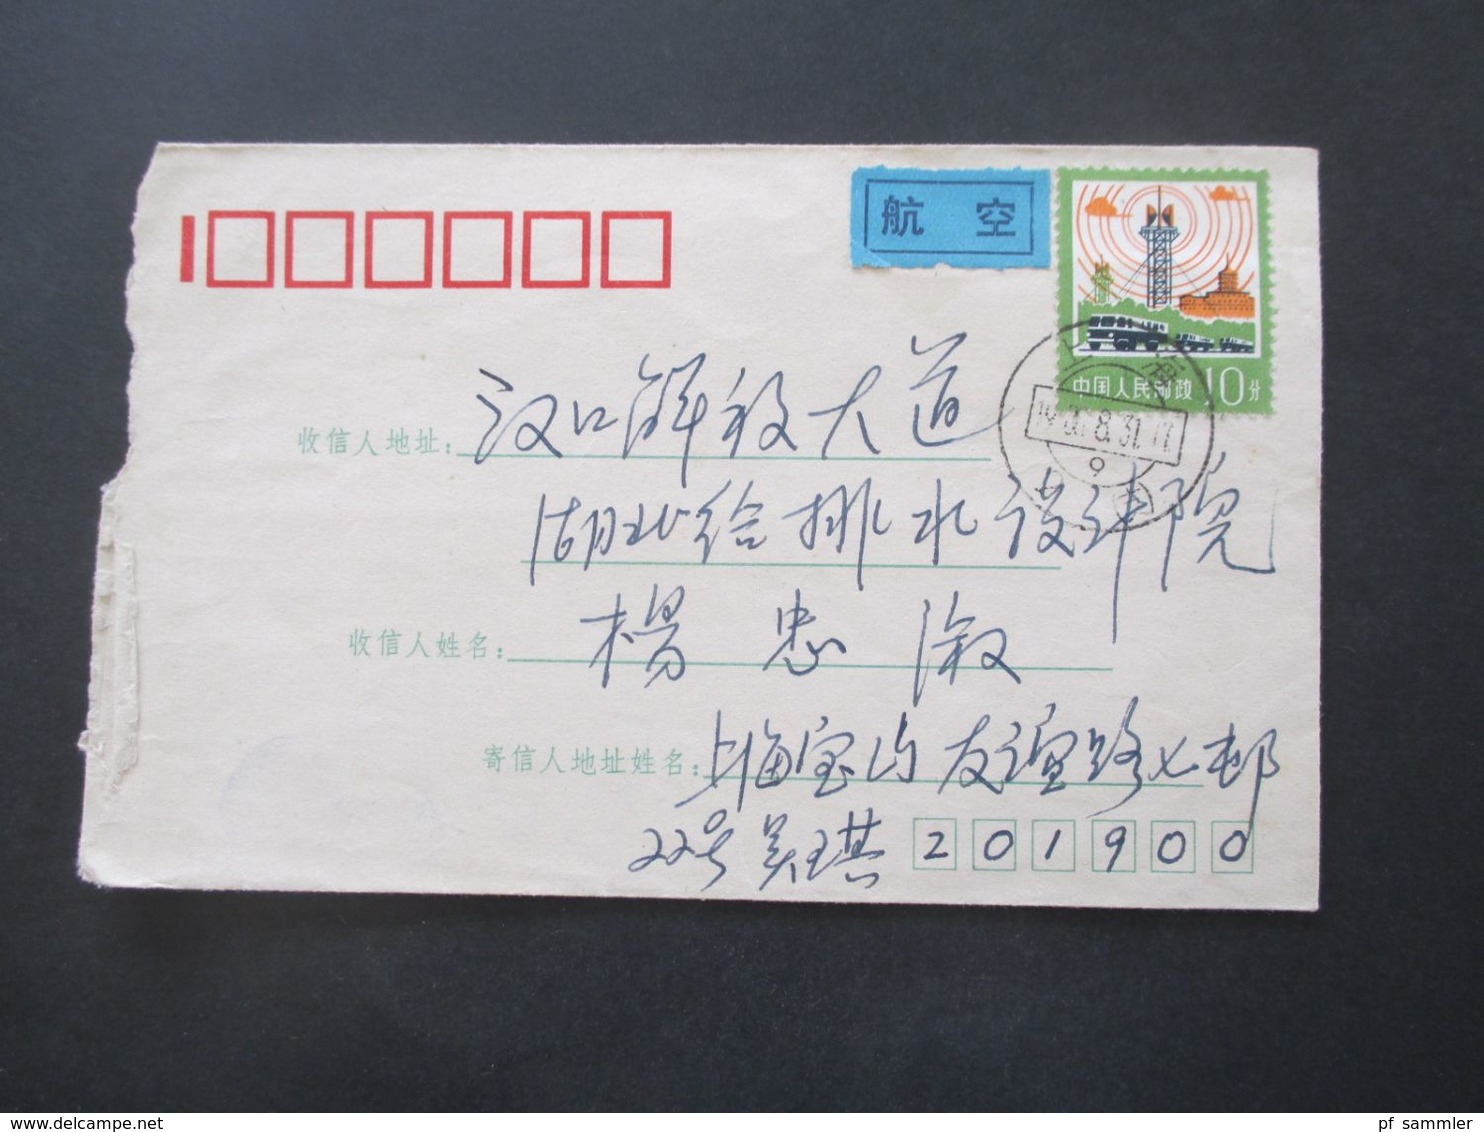 航 空
中国人民邮政 10分
上海
8.31.17
9
收信人地址: 汉口解放大道
湖北给排水设计院
收信人姓名: 楊忠淑
寄信人地址姓名: 上海宝山友谊路七邨
22号 吴琪 201900
pf_sammler